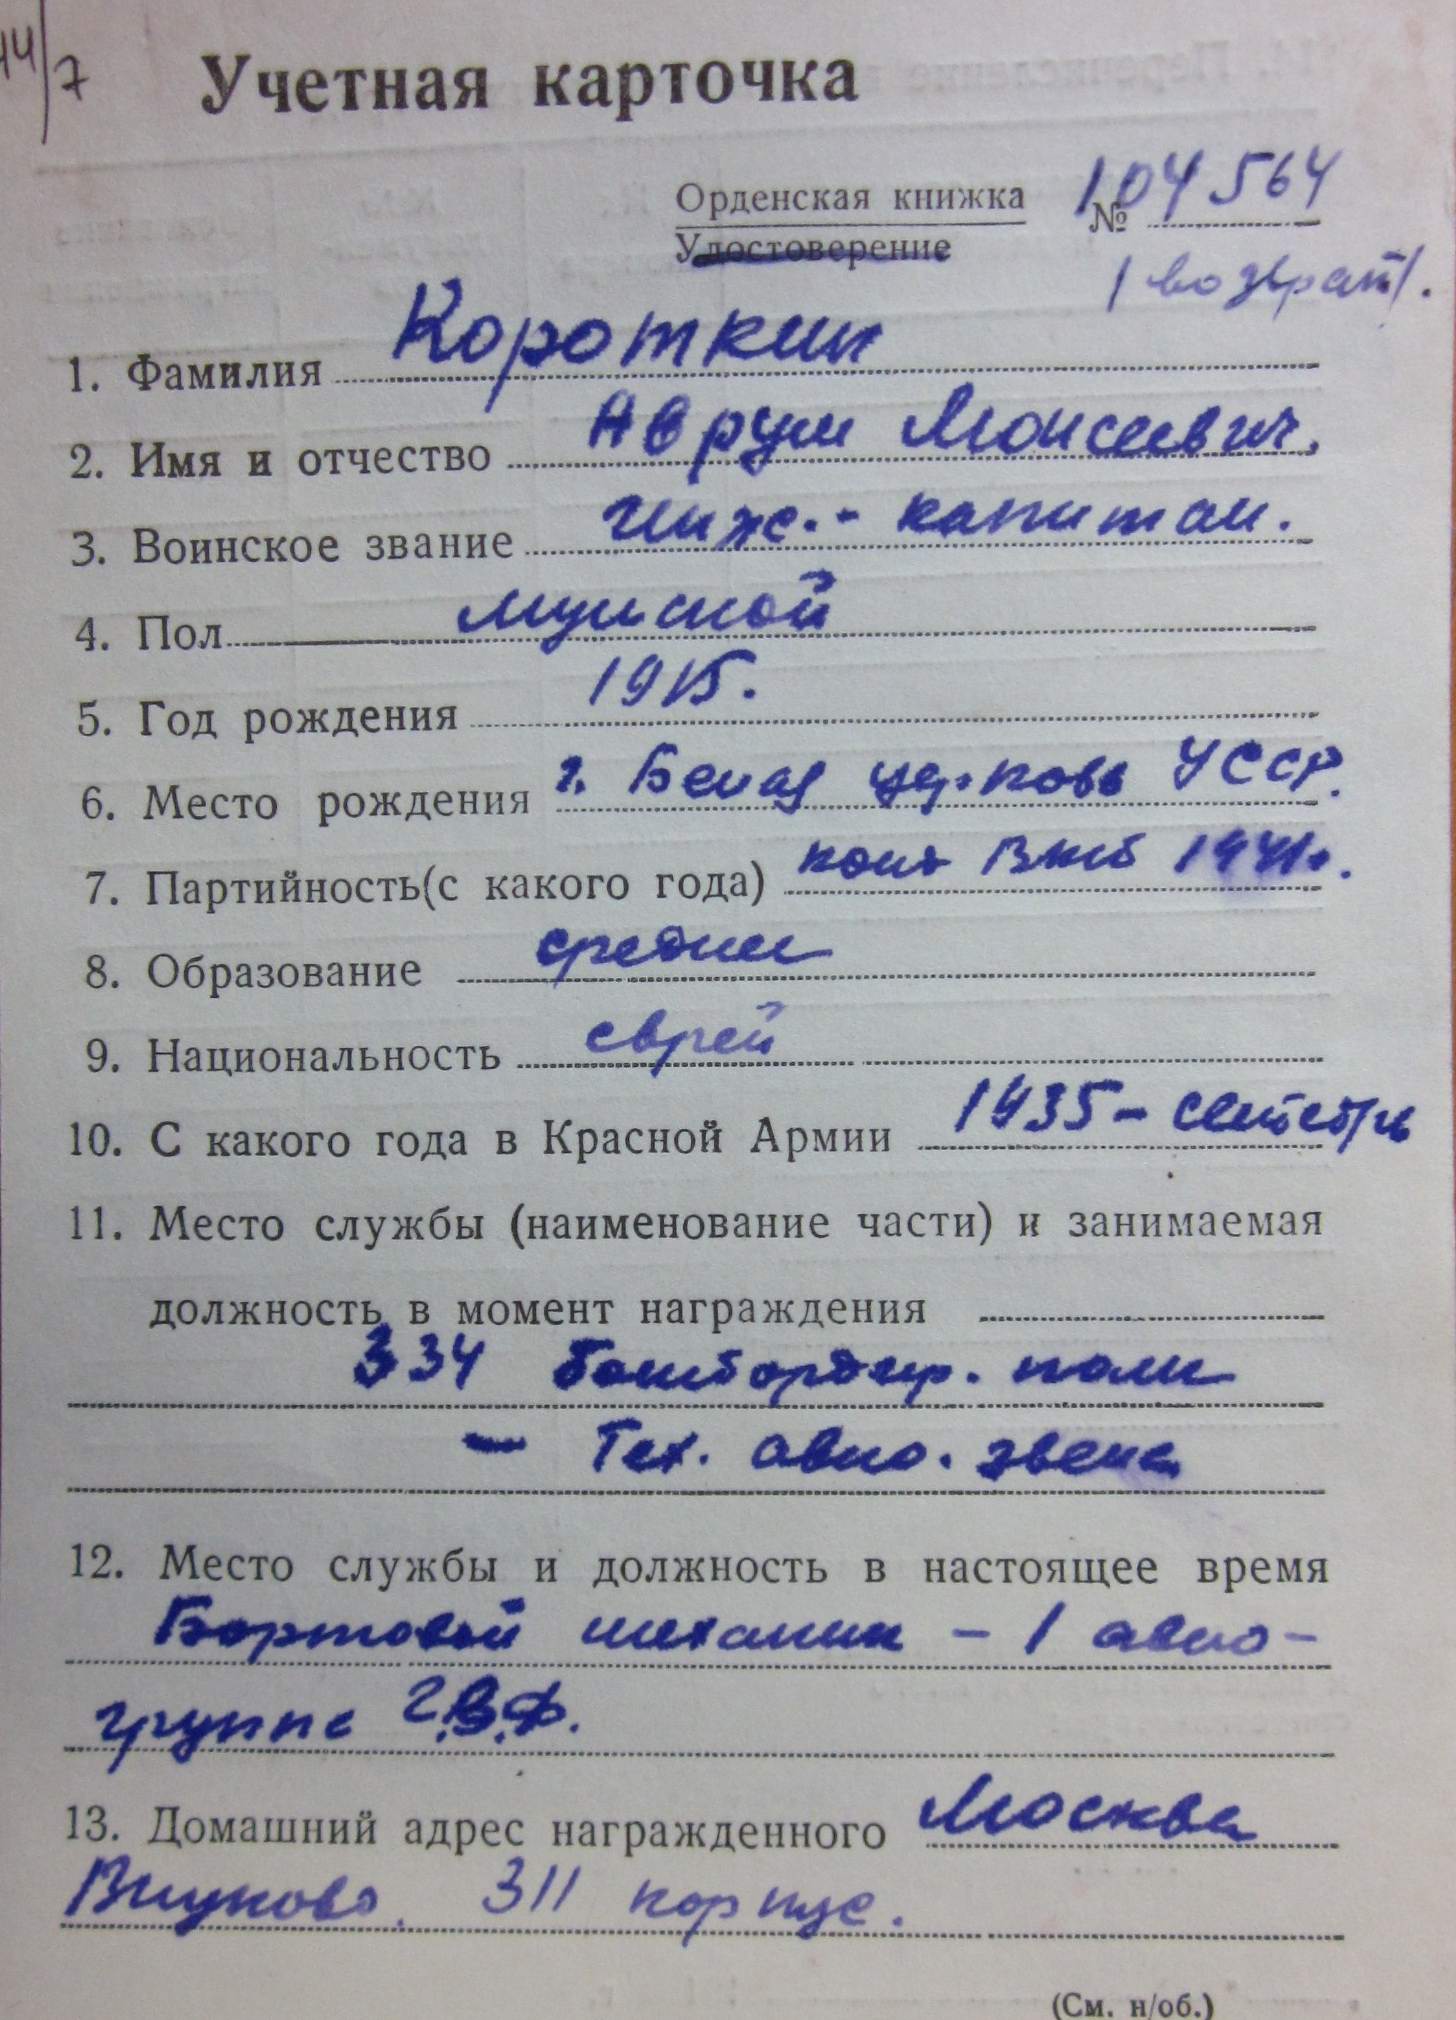 44/7
Учетная карточка
Орденская книжка № 104564
Удостоверение
1 возврат.
1. Фамилия Короткин
2. Имя и отчество Аврум Моисеевич.
3. Воинское звание Инж.- капитан.
4. Пол мужской
5. Год рождения 1915.
6. Место рождения г. Белая церковь УССР.
7. Партийность(с какого года) 1941г.
8. Образование среднее
9. Национальность еврей
10. С какого года в Красной Армии 1935 - сентябрь
11. Место службы (наименование части) и занимаемая
должность в момент награждения
334 бомбардир. полк
- Тех. авиа. звена
12. Место службы и должность в настоящее время
Бортовой механик - 1 авиа-
группе Г.В.Ф.
13. Домашний адрес награжденного Москва
Внуково. 311 корпус.
(См. н/об.)